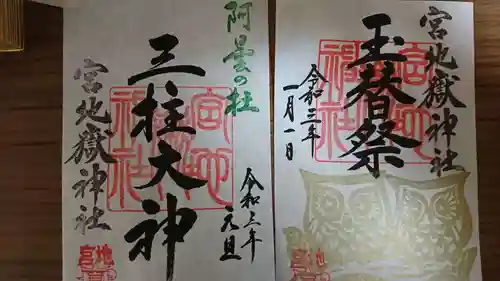 阿曇の社
三柱大神
宮地嶽神社
令和三年
元旦
宮地嶽神社
玉替祭
宮地嶽神社
令和三年
一月一日
宮地嶽神社